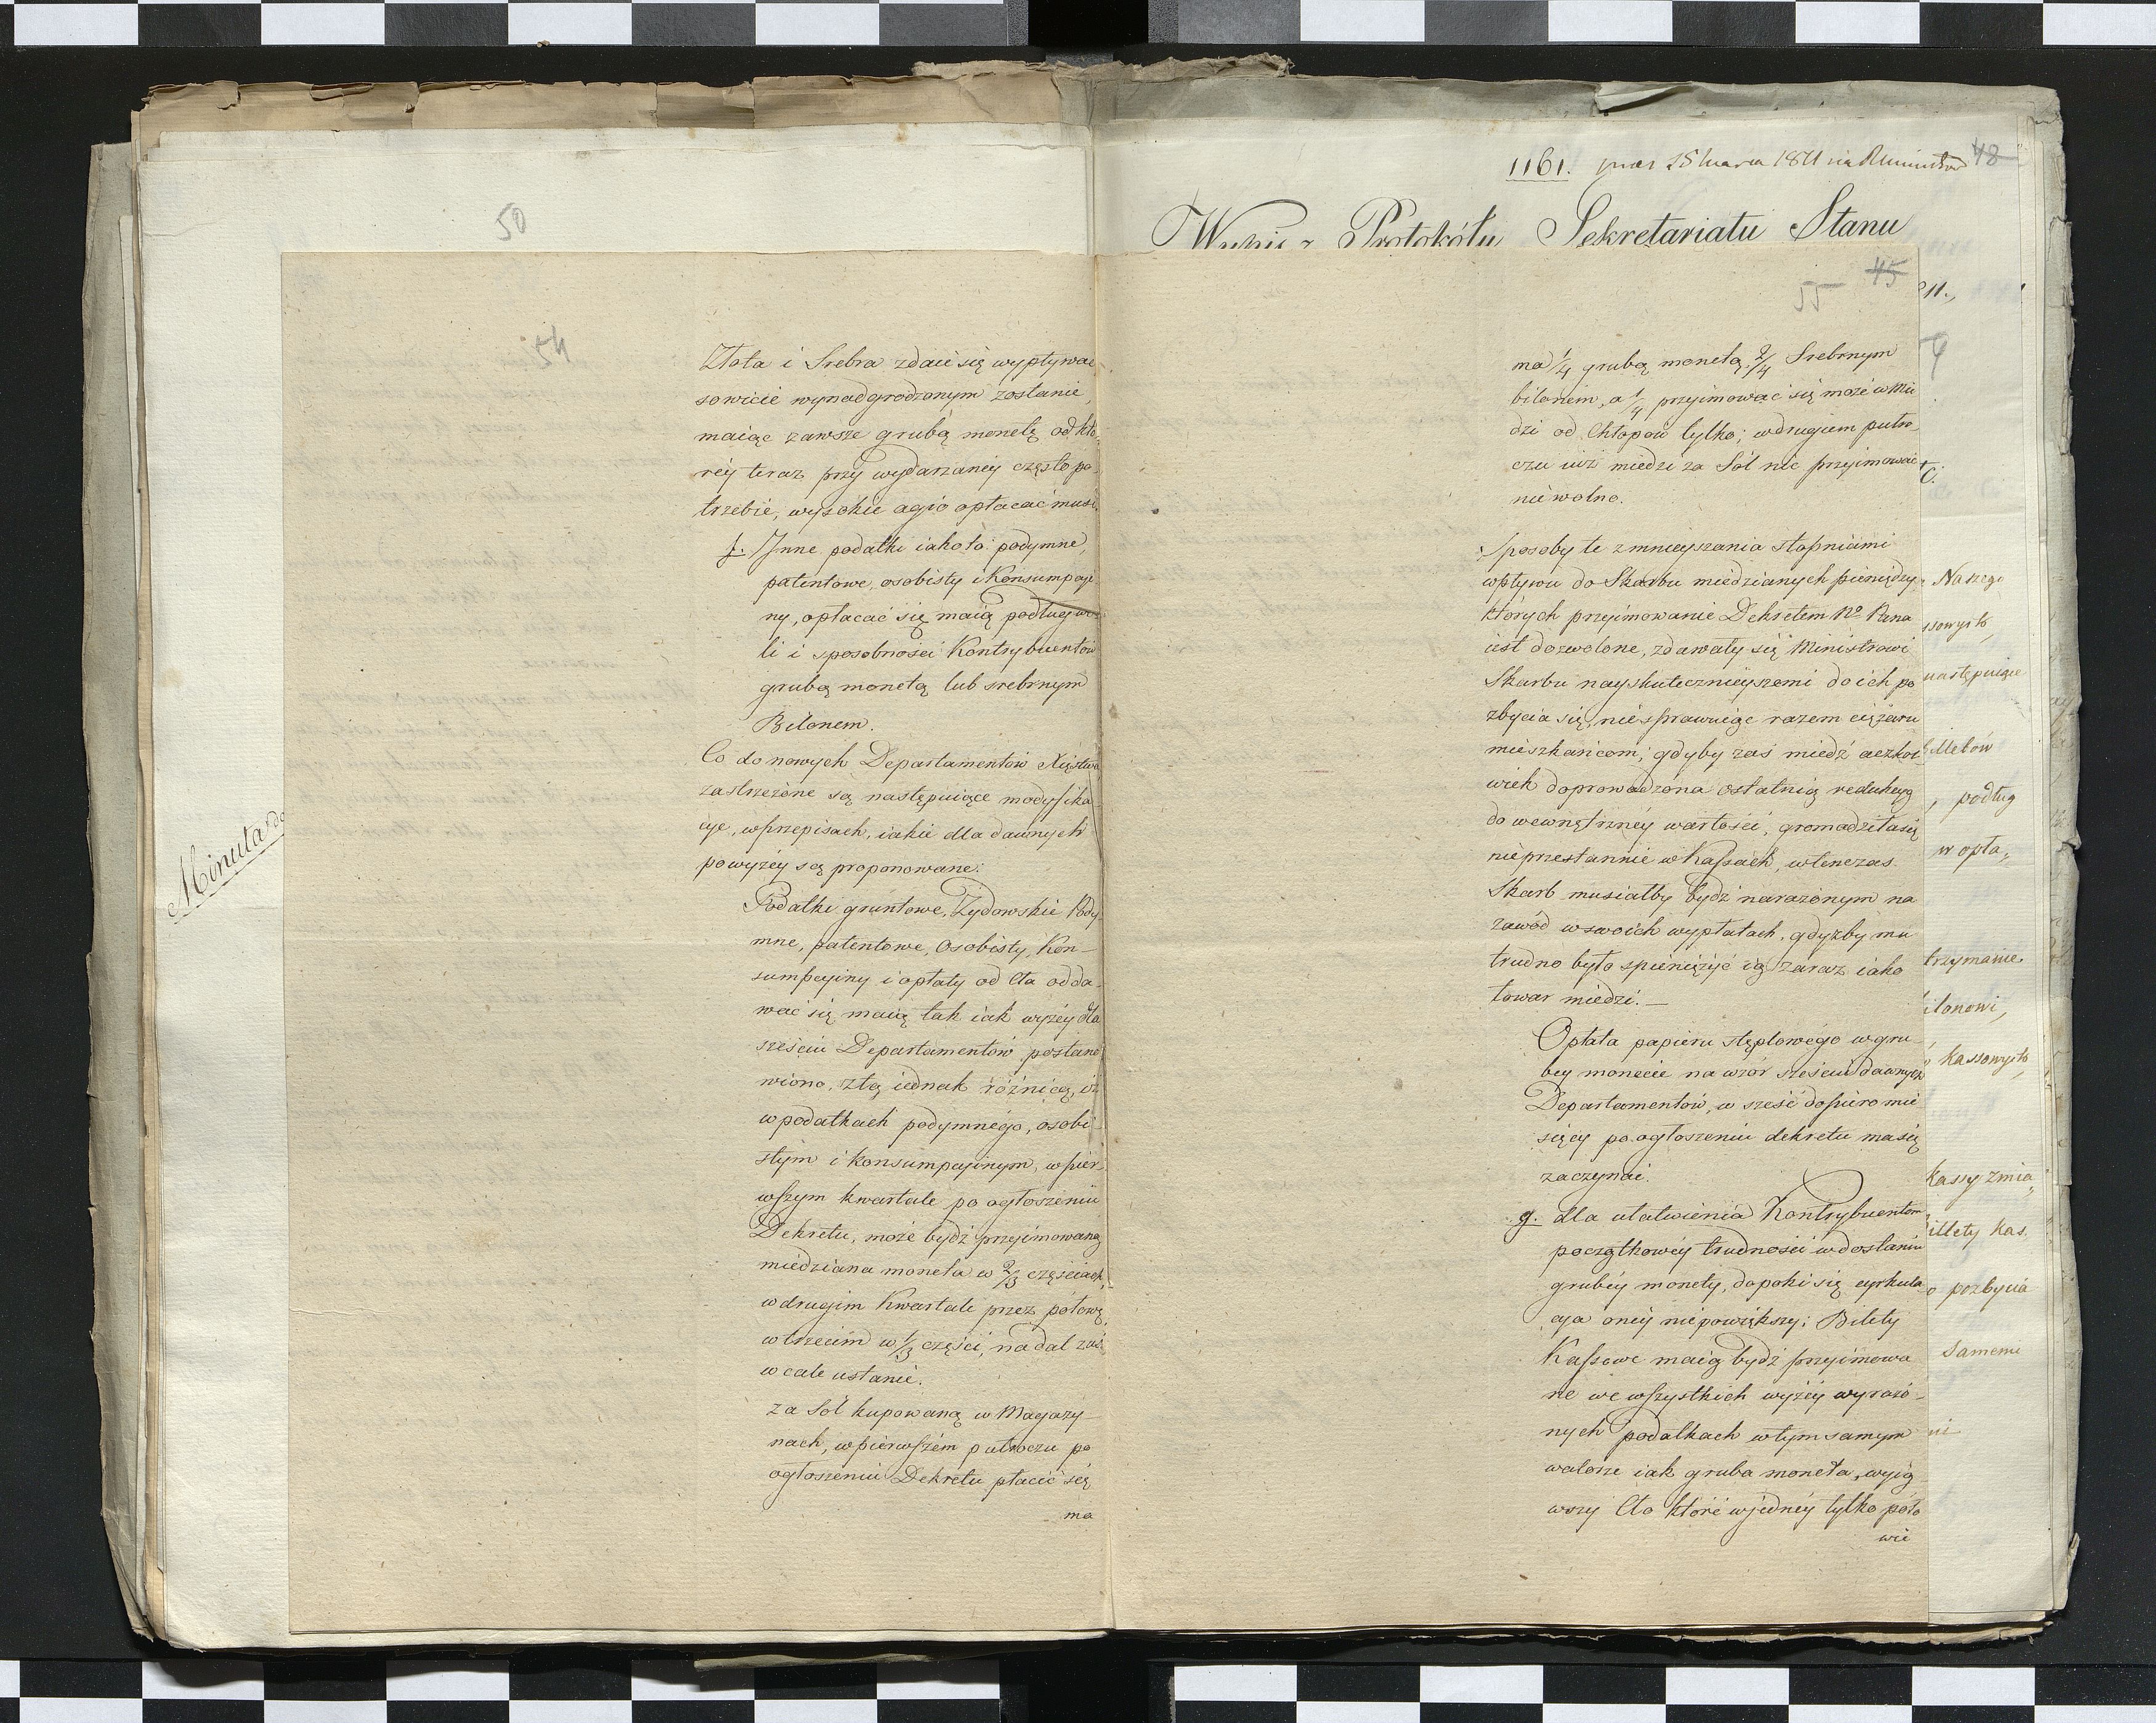 50
54
Minuta
Złota i Srebra zdaie się wypływać
sowicie wynadgrodzonym zostanie,
maiąc zawsze grubą monetę, od któ-
réy teraz przy wydarzanéy często po-
trzebie, wysokie agio opłacać musi.
f. Inne podatki iako to: podymne,
patentowe, osobisty i Konsumpcyi
ny, opłacać się maią podług wo
li i sposobności Kontrybuentów
grubą monetą lub srebrnym
Bilonem.
Co do nowych Departamentów Xięstwa
zastrzeżone są następuiące modyfika-
cye, w przepisach, iakie dla dawnych
powyżéy są proponowane:
Podatki gruntowe, Żydowskie Pody
mne, patentowe, Osobisty, Kon-
sumpcyiny i opłaty od Cła odda-
wać się maią tak iak wyżéy dla
sześciu Departamentów postano
wiono, z tą iednak różnicą, iż
w podatkach podymnego, osobi-
stym i konsumpcyinym, w pier-
wszym kwartale po ogłoszeniu
Dekretu, może bydź przyimowaną
miedziana moneta w 2/3 częściach,
w drugim Kwartale przez połowę,
w trzecim w 1/3 części, nadal zaś
w cale ustanie.
za Sól kupowaną w Magazy-
nach, w pierwszém pułroczu po
ogłoszeniu Dekretu płacić się
ma
1161. 25 Marca 1811 48
Wypis z Protokółu Sekretariatu Stanu
45
55
ma 1/4 grubą monetą, 2/4 Srebrnym
bilonem, a 1/4 przyimować się może w Mie
dzi od Chłopów tylko; w drugiem pułro-
czu iuż miedzi za Sól nie przyimować
nie wolno.
Sposoby te zmnieyszania stopniami
wpływu do Skarbu miedzianych pieniędzy
których przyimowanie Dekretem No Pana
iest dozwolone, zdawały się Ministrowi
Skarbu nayskutecznieyszemi do ich po
zbycia się, nie sprawuiąc razem ciężaru
mieszkańcom; gdyby zaś miedź aczkol
wiek doprowadzona ostatnią redukcyą
do wewnętrznéy wartości, gromadziła się
nieprzestannie w Kassach, wtenczas
Skarb musiałby bydź narażonym na
zawód w swoich wypłatach, gdyżby mu
trudno było spieniężyć ią zaraz iako
towar miedzi.—
Opłata papieru stęplowego w gru-
béy monecie na wzór sześciu dawnych
Departamentów, w sześć dopiero mie
sięcy po ogłoszeniu dekretu ma się
zaczynać.
g. dla ułatwienia Kontrybuentom
początkowéy trudności w dostaniu
grubéy monety, dopóki się cyrkula
cya onéy niepowiększy; Bilety
Kassowe maią bydź przyimowa
ne we wszystkich wyżéy wyrażo-
nych podatkach w tym samym
walorze iak gruba moneta, wyią
wszy Cło które w jednéy tylko poło
wie
Naszego
ssowych,
następuiące
podług
w opła„
trzymanie
kassowych,
Kassy zmia„
kas.
pozbycia
samemi